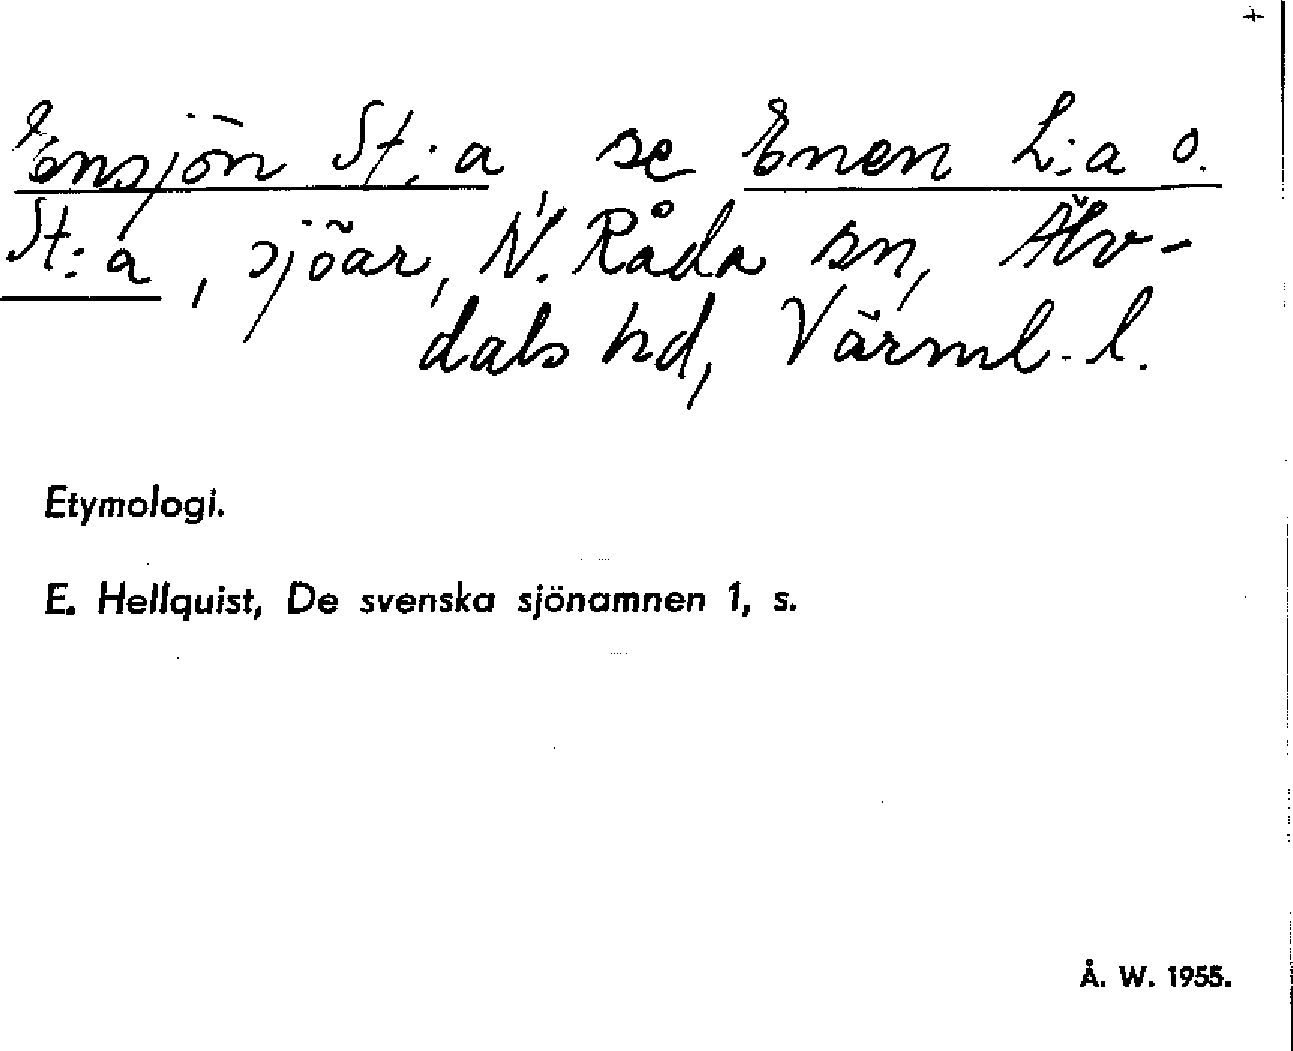 +
Ensjön St:a, se Enen L:a o.
St:a, sjöar, N. Råda sn, Älv-
dals hd, Värml. l.
Etymologi.
E. Hellquist, De svenska sjönamnen 1, s.
Å. W. 1955.